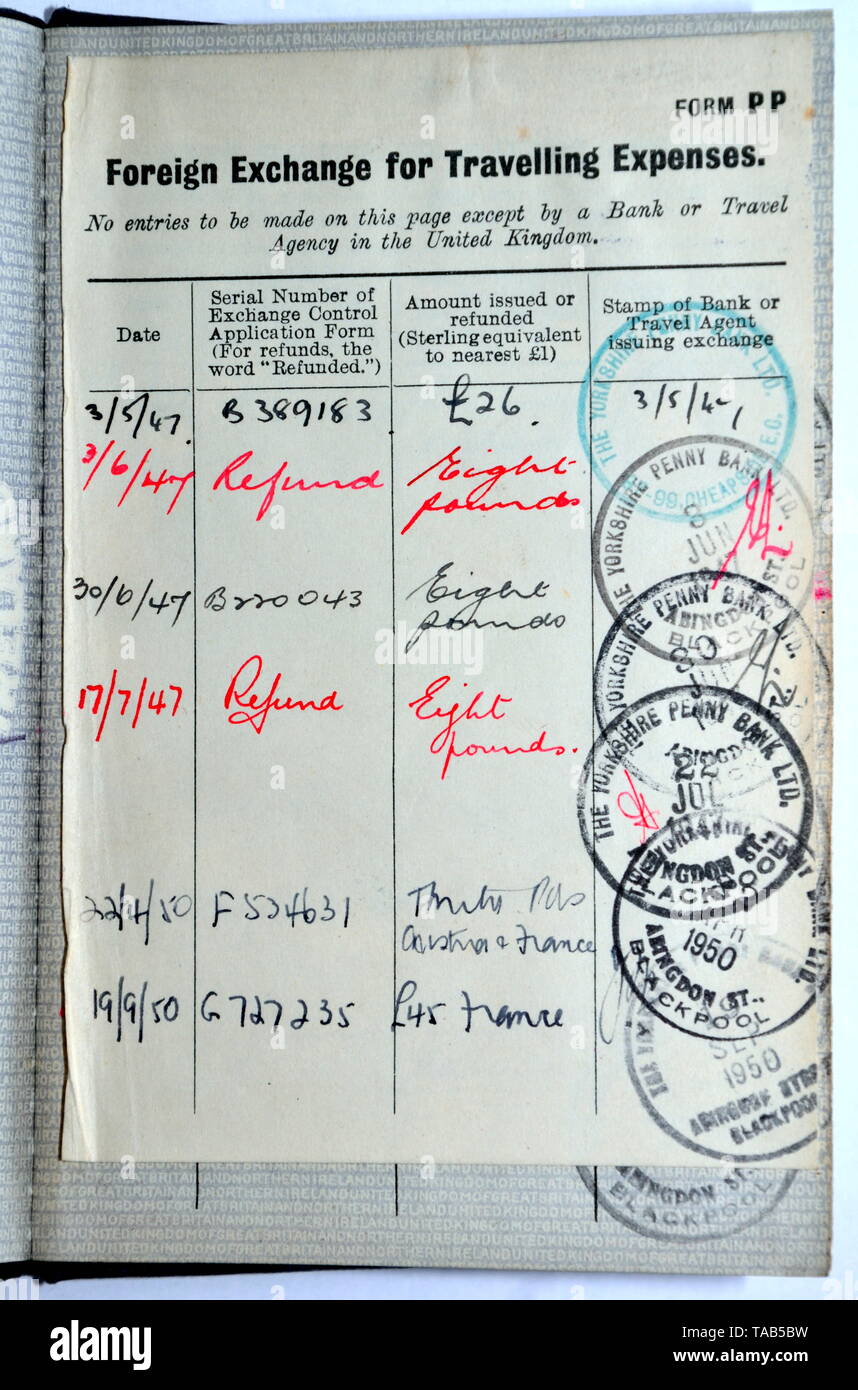 FORM PP
Foreign Exchange for Travelling Expenses.
No entries to be made on this page except by a Bank or Travel
Agency in the United Kingdom.
Date
Serial Number of
Exchange Control
Application Form
(For refunds, the
word "Refunded.")
Amount issued or
refunded
(Sterling equivalent
to nearest £1)
Stamp of Bank or
Travel Agent
issuing exchange
3/5/47. B389183 £26. 3/5/47
3/6/47 Refund Eight
pounds
30/6/47 B220043 Eight
pounds
17/7/47 Refund Eight
pounds.
22/4/50 F534631 Pds
Austria & France
19/9/50 G727235 £45 France
THE YORKSHIRE PENNY BANK LTD.
99, CHEAPSIDE, E.C.
THE YORKSHIRE PENNY BANK LTD.
JUN
ABINGDON ST.
BLACKPOOL
YORKSHIRE PENNY BANK LTD.
30
ABINGDON
THE YORKSHIRE PENNY BANK LTD.
22
JUL
ABINGDON ST.,
BLACKPOOL
1950
ABINGDON ST.,
BLACKPOOL
SEP
1950
ABINGDON STREET
BLACKPOOL
ABINGDON ST.
BLACKPOOL
alamy
alamy
Image ID: TAB5BW
www.alamy.com